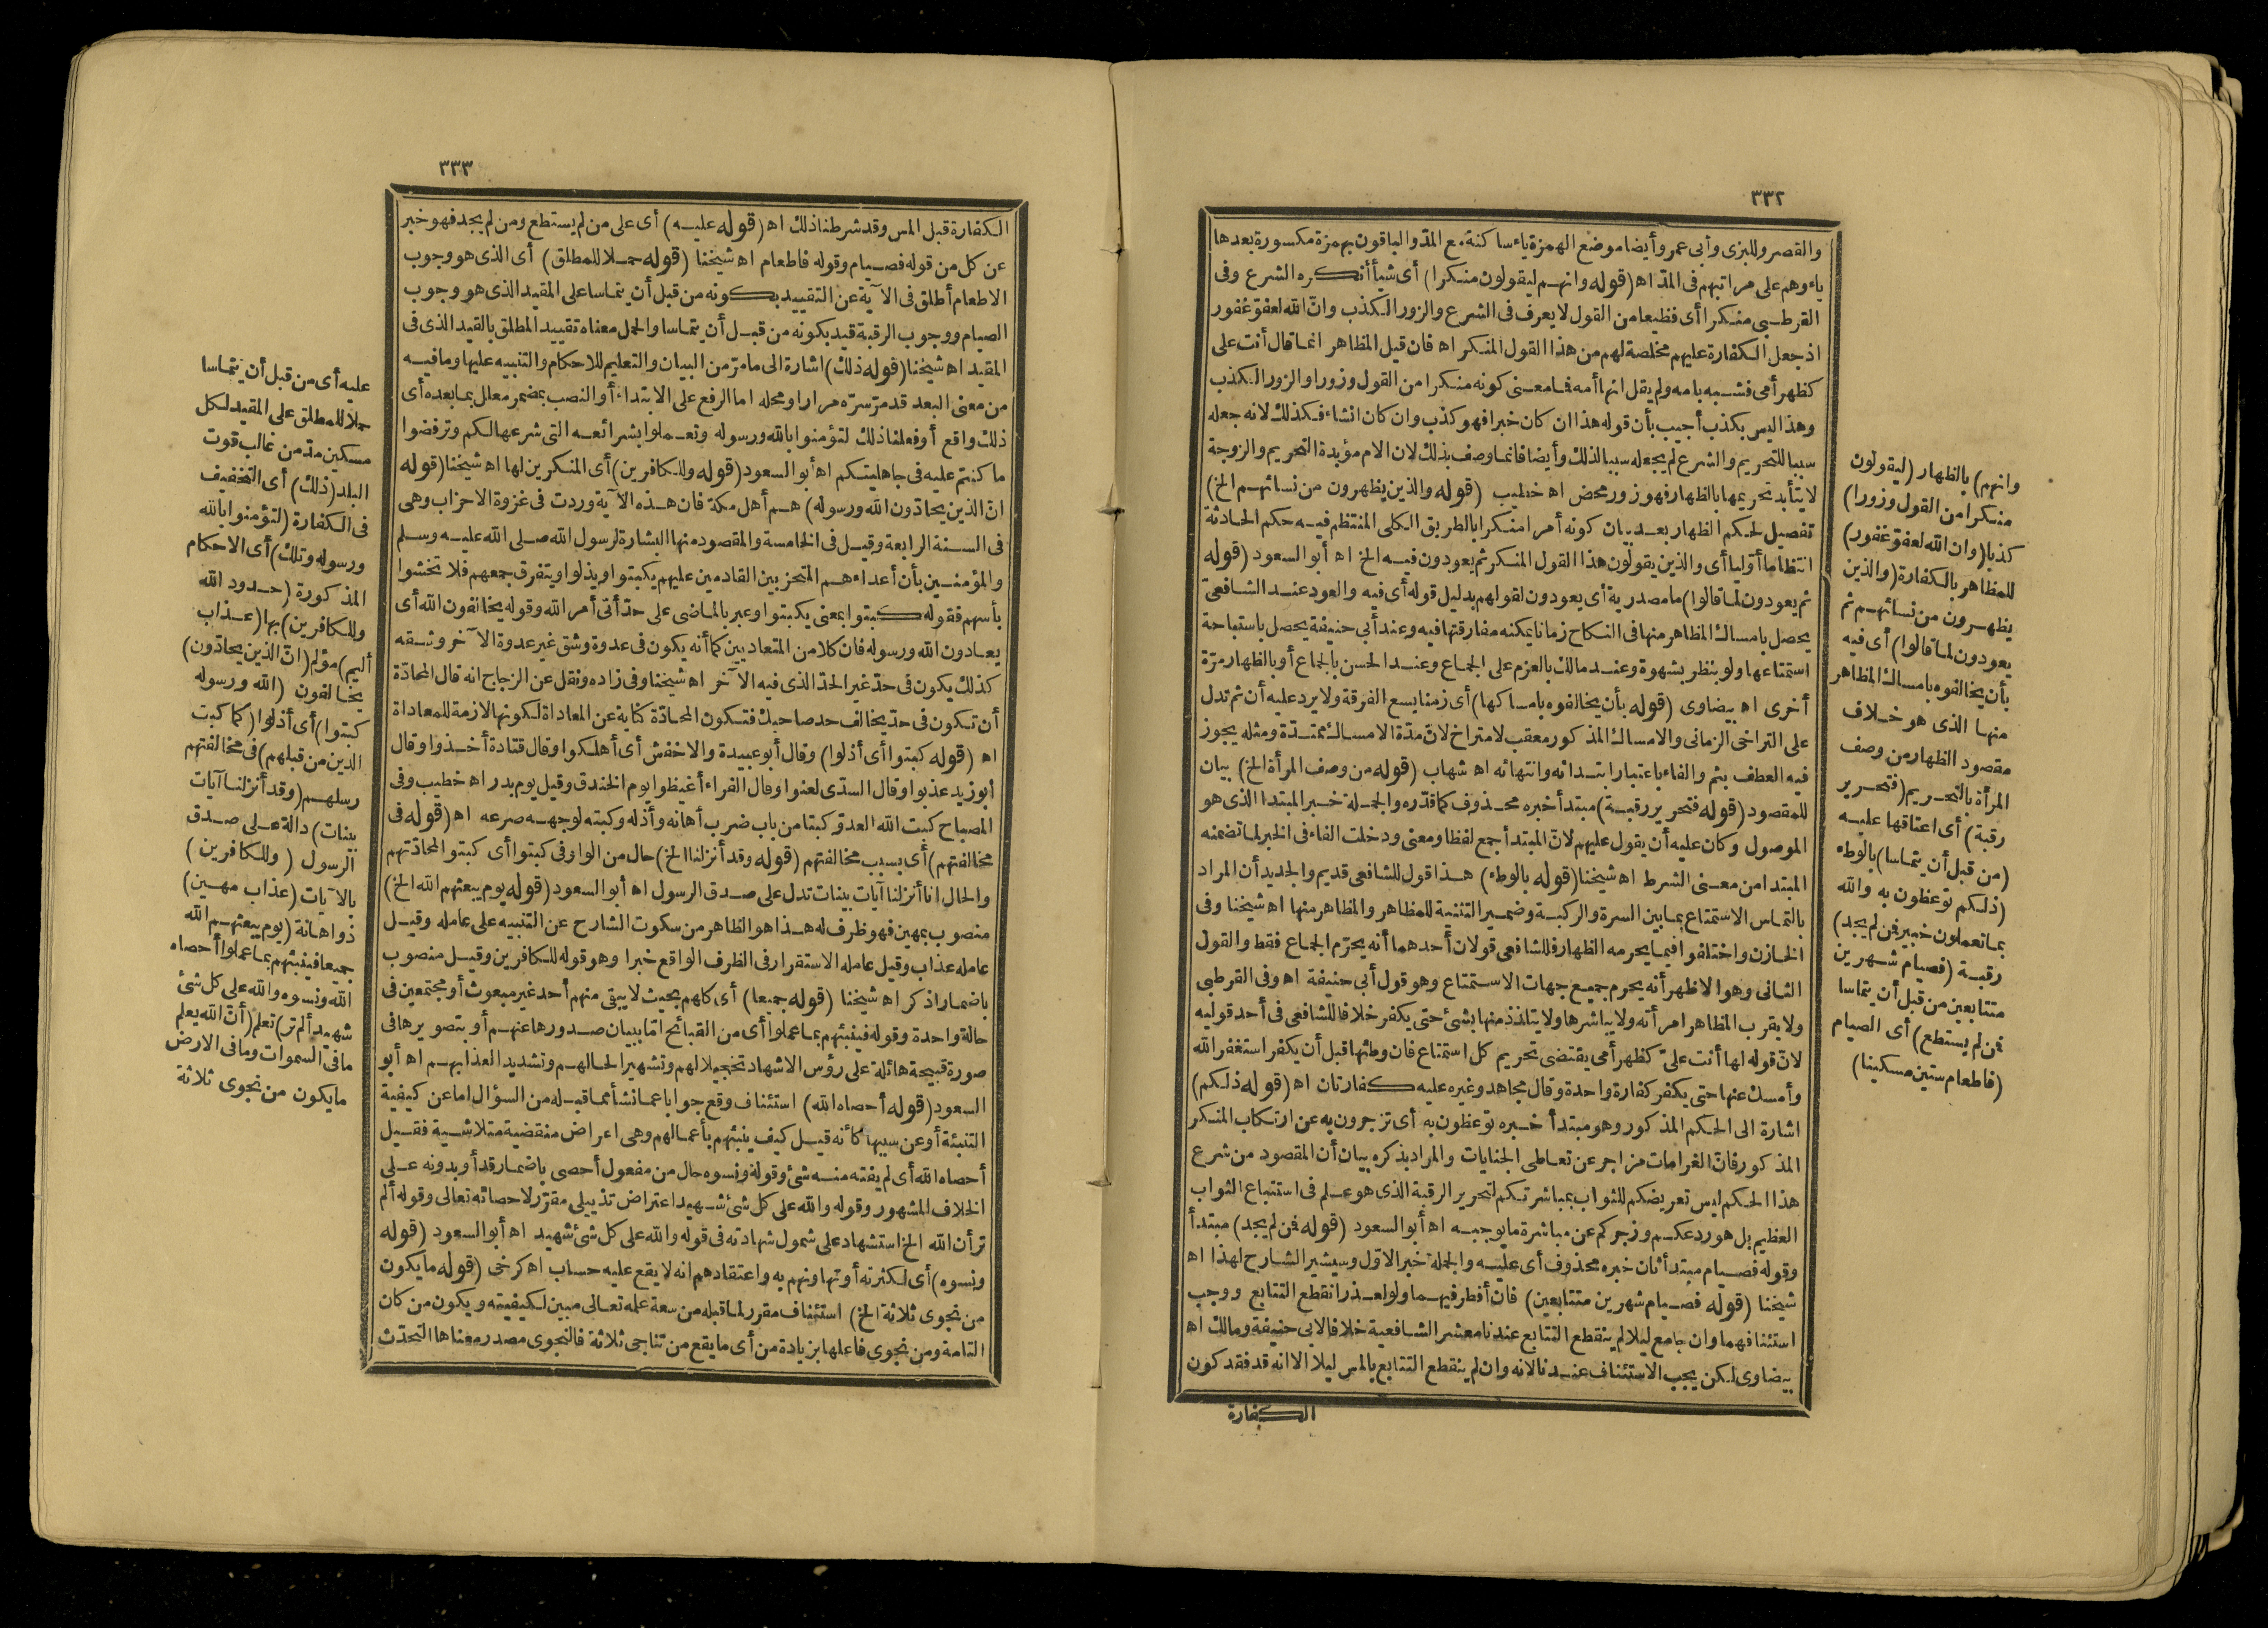 ٣٣٢
والقصر وللبزى وأبى عمر وأيضا موضع الهمزة ياء ساكنة مع المدّ والباقون بهمزة مكسورة بعدها
ياء وهم على مراتبهم فى المدّ اه (قوله وانهم ليقولون منكرا) أى شيأ أنكره الشرع وفى
القرطبى منكرا أى فظيعا من القول لا يعرف فى الشرع والزور الكذب وانّ الله لعفوّ غفور
اذ جعل الكفارة عليهم مخلصة لهم من هذا القول المنكر اه فان قيل المظاهر انما قال أنت على
كظهر أمى فشبه بامه ولم يقل انها أمه فما معنى كونه منكرا من القول وزورا والزور الكذب
وهذا ليس بكذب أجيب بأن قوله هذا ان كان خبرا فهو كذب وان كان انشاء فكذلك لانه جعله
سببا للتحريم والشرع لم يجعله سببا لذلك وأيضا فانما وصف بذلك لان الام مؤبدة التحريم والزوجة
لا يتأبد تحريمها بالظهار فهو زور محض اه خطيب (قوله والذين يظهرون من نسائهم الخ)
تفصيل لحكم الظهار بعد بيان كونه أمرا منكرا بالطريق الكلى المنتظم فيه حكم الحادثة
انتظاما أوّليا أى والذين يقولون هذا القول المنكر ثم يعودون فيه الخ اه أبو السعود (قوله
ثم يعودون لما قالوا) ما مصدرية أى يعودون لقولهم بدليل قوله أى فيه والعود عند الشافعى
يحصل بامساك المظاهر منها فى النكاح زمانا يمكنه مفارقتها فيه وعند أبى حنيفة يحصل باستباحة
استمتاعها ولو بنظر بشهوة وعند مالك بالعزم على الجماع وعند الحسن بالجماع أو بالظهار مرّة
أخرى اه بيضاوى (قوله بأن يخالفوه بامساكها) أى زمنا يسع الفرقة ولا يرد عليه أن ثم تدل
على التراخى الزمانى والامساك المذكور معقب لا متراخ لانّ مدّة الامساك ممتدّة ومثله يجوز
فيه العطف بثم والفاء باعتبار ابتدائه وانتهائه اه شهاب (قوله من وصف المرأة الخ) بيان
للمقصود (قوله فتحرير رقبة) مبتدأ خبره محذوف كما قدّره والجملة خبر المبتدا الذى هو
الموصول وكان عليه أن يقول عليهم لانّ المبتدأ جمع لفظا ومعنى ودخلت الفاء فى الخبر لما تضمنه
المبتدا من معنى الشرط اه شيخنا (قوله بالوطء) هذا قول للشافعى قديم والجديد أن المراد
بالتماس الاستمتاع بما بين السرة والركبة وضمير التثنية للمظاهر والمظاهر منها اه شيخنا وفى
الخازن واختلفوا فيما يحرمه الظهار فللشافعى قولان أحدهما أنه يحرّم الجماع فقط والقول
الثانى وهو الاظهر أنه يحرم جميع جهات الاستمتاع وهو قول أبى حنيفة اه وفى القرطبى
ولا يقرب المظاهر امرأته ولا يباشرها ولا يتلذذ منها بشئ حتى يكفر خلافا للشافعى فى أحد قوليه
لانّ قوله لها أنت علىّ كظهر أمى يقتضى تحريم كل استمتاع فان وطئها قبل أن يكفر استغفر الله
وأمسك عنها حتى يكفر كفارة واحدة وقال مجاهد وغيره عليه كفارتان اه (قوله ذلكم)
اشارة الى الحكم المذكور وهو مبتدأ خبره توعظون به أى تزجرون به عن ارتكاب المنكر
المذكور فانّ الغرامات مزاجر عن تعاطى الجنايات والمراد بذكره بيان أن المقصود من شرع
هذا الحكم ليس تعريضكم للثواب بمباشرتكم لتحرير الرقبة الذى هو علم فى استتباع الثواب
العظيم بل هو ردعكم وزجركم عن مباشرة ما يوجبه اه أبو السعود (قوله فمن لم يجد) مبتدأ
وقوله فصيام مبتدأ ثان خبره محذوف أى عليه والجملة خبر الاوّل وسيشير الشارح لهذا اه
شيخنا (قوله فصيام شهرين متتابعين) فان أفطر فيهما ولو لعذر انقطع التتابع ووجب
استئنافهما وان جامع ليلا لم ينقطع التتابع عندنا معشر الشافعية خلافا لابى حنيفة ومالك اه
بيضاوى لكن يجب الاستئناف عندنا لانه وان لم ينقطع التتابع بالمس ليلا الا انه قد فقد كون
الكفارة
وانهم) بالظهار (ليقولون
منكرا من القول وزورا)
كذبا (وان الله لعفوّ غفور)
للمظاهر بالكفارة (والذين
يظهرون من نسائهم ثم
يعودون لما قالوا) أى فيه
بأن يخالفوه بامساك المظاهر
منها الذى هو خلاف
مقصود الظهار من وصف
المرأة بالتحريم (فتحرير
رقبة) أى اعتاقها عليه
(من قبل أن يتماسا) بالوطء
(ذلكم توعظون به والله
بما تعملون خبير فمن لم يجد)
رقبة (فصيام شهرين
متتابعين من قبل أن يتماسا
فمن لم يستطع) أى الصيام
(فاطعام ستين مسكينا)
٣٣٣
الكفارة قبل المس وقد شرطنا ذلك اه (قوله عليه) أى على من لم يستطع ومن لم يجد فهو خبر
عن كل من قوله فصيام وقوله فاطعام اه شيخنا (قوله حملا للمطلق) أى الذى هو وجوب
الاطعام أطلق فى الآية عن التقييد بكونه من قبل أن يتماسا على المقيد الذى هو وجوب
الصيام ووجوب الرقبة قيد بكونه من قبل أن يتماسا والحمل معناه تقييد المطلق بالقيد الذى فى
المقيد اه شيخنا (قوله ذلك) اشارة الى ما مرّ من البيان والتعليم للاحكام والتنبيه عليها وما فيه
من معنى البعد قد مرّ سرّه مرارا ومحله اما الرفع على الابتداء أو النصب بمضمر معلل بما بعده أى
ذلك واقع أو فعلنا ذلك لتؤمنوا بالله ورسوله وتعملوا بشرائعه التى شرعها لكم وترفضوا
ما كنتم عليه فى جاهليتكم اه أبو السعود (قوله وللكافرين) أى المنكرين لها اه شيخنا (قوله
انّ الذين يحادّون الله ورسوله) هم أهل مكة فان هذه الآية وردت فى غزوة الاحزاب وهى
فى السنة الرابعة وقيل فى الخامسة والمقصود منها البشارة لرسول الله صلى الله عليه وسلم
والمؤمنين بأن أعداءهم المتحزبين القادمين عليهم يكبتوا ويذلوا ويتفرق جمعهم فلا تخشوا
بأسهم فقوله كبتوا بمعنى يكبتوا وعبر بالماضى على حدّ أتى أمر الله وقوله يخالفون الله أى
يعادون الله ورسوله فان كلا من المتعاديين كما أنه يكون فى عدوة وشق غير عدوة الآخر وشقه
كذلك يكون فى حدّ غير الحدّ الذى فيه الآخر اه شيخنا وفى زاده ونقل عن الزجاج انه قال المحادّة
أن تكون فى حدّ يخالف حد صاحبك فتكون المحادّة كناية عن المعاداة لكونها لازمة للمعاداة
اه (قوله كبتوا أى أذلوا) وقال أبو عبيدة والاخفش أى أهلكوا وقال قتادة أخذوا وقال
أبو زيد عذبوا وقال السدّى لعنوا وقال الفراء أغيظوا يوم الخندق وقيل يوم بدر اه خطيب وفى
المصباح كبت الله العدوّ كبتا من باب ضرب أهانه وأذله وكبته لوجهه صرعه اه (قوله فى
مخالفتهم) أى بسبب مخالفتهم (قوله وقد أنزلنا الخ) حال من الواو فى كبتوا أى كبتوا لمحادّتهم
والحال انا أنزلنا آيات بينات تدل على صدق الرسول اه أبو السعود (قوله يوم يبعثهم الله الخ)
منصوب بمهين فهو ظرف له هذا هو الظاهر من سكوت الشارح عن التنبيه على عامله وقيل
عامله عذاب وقيل عامله الاستقرار فى الظرف الواقع خبرا وهو قوله للكافرين وقيل منصوب
باضمار اذكر اه شيخنا (قوله جميعا) أى كلهم بحيث لا يبقى منهم أحد غير مبعوث أو مجتمعين فى
حالة واحدة وقوله فينبئهم بما عملوا أى من القبائح امّا ببيان صدورها عنهم أو بتصويرها فى
صورة قبيحة هائلة على رؤس الاشهاد تخجيلا لهم وتشهيرا لحالهم وتشديد العذابهم اه أبو
السعود (قوله أحصاه الله) استئناف وقع جوابا عما نشأ مما قبله من السؤال اما عن كيفية
التنبئة أو عن سببها كأنه قيل كيف ينبئهم بأعمالهم وهى اعراض منقضية متلاشية فقيل
أحصاه الله أى لم يفته منه شئ وقوله ونسوه حال من مفعول أحصى باضمار قد أو بدونه على
الخلاف المشهور وقوله والله على كل شئ شهيد اعتراض تذييلى مقرّر لاحصائه تعالى وقوله ألم
تر أن الله الخ استشهاد على شمول شهادته فى قوله والله على كل شئ شهيد اه أبو السعود (قوله
ونسوه) أى لكثرته أو تهاونهم به واعتقادهم انه لا يقع عليه حساب اه كرخى (قوله ما يكون
من نجوى ثلاثة الخ) استئناف مقرر لما قبله من سعة علمه تعالى مبين لكيفيته ويكون من كان
التامة ومن نجوى فاعلها بزيادة من أى ما يقع من تناجى ثلاثة فالنجوى مصدر معناها التحدّث
عليه أى من قبل أن يتماسا
حملا للمطلق على المقيد لكل
مسكين مدّ من غالب قوت
البلد (ذلك) أى التخفيف
فى الكفارة (لتؤمنوا بالله
ورسوله وتلك) أى الاحكام
المذكورة (حدود الله
وللكافرين) بها (عذاب
أليم) مؤلم (انّ الذين يحادّون)
يخالفون (الله ورسوله
كبتوا) أى أذلوا (كما كبت
الذين من قبلهم) فى مخالفتهم
رسلهم (وقد أنزلنا آيات
بينات) دالة على صدق
الرسول (وللكافرين)
بالآيات (عذاب مهين)
ذو اهانة (يوم يبعثهم الله
جميعا فينبئهم بما عملوا أحصاه
الله ونسوه والله على كل شئ
شهيد ألم تر) تعلم (أنّ الله يعلم
ما فى السموات وما فى الارض
ما يكون من نجوى ثلاثة